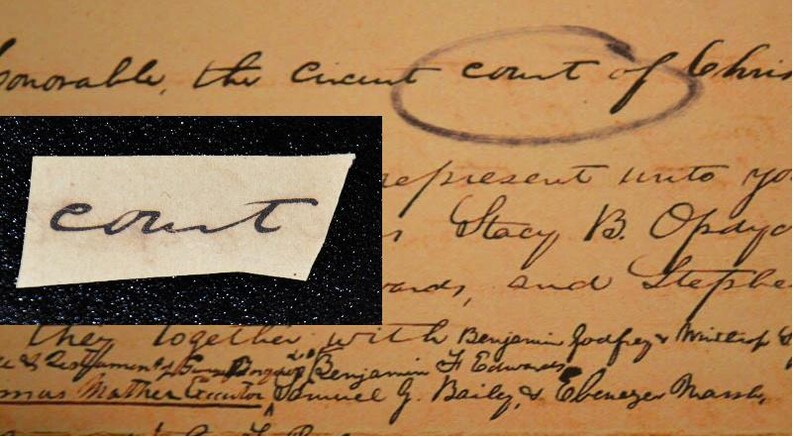 onorable, the Circuit court of Chris
court
represent unto yo
Stacy B. Opdyc
ards, and Stephe
they together with Benjamin Godfrey & Winthrop S
& Testament of Benjamin F. Edwards
mas Mather Executor Samuel G. Baily, & Ebenezer Marsh,